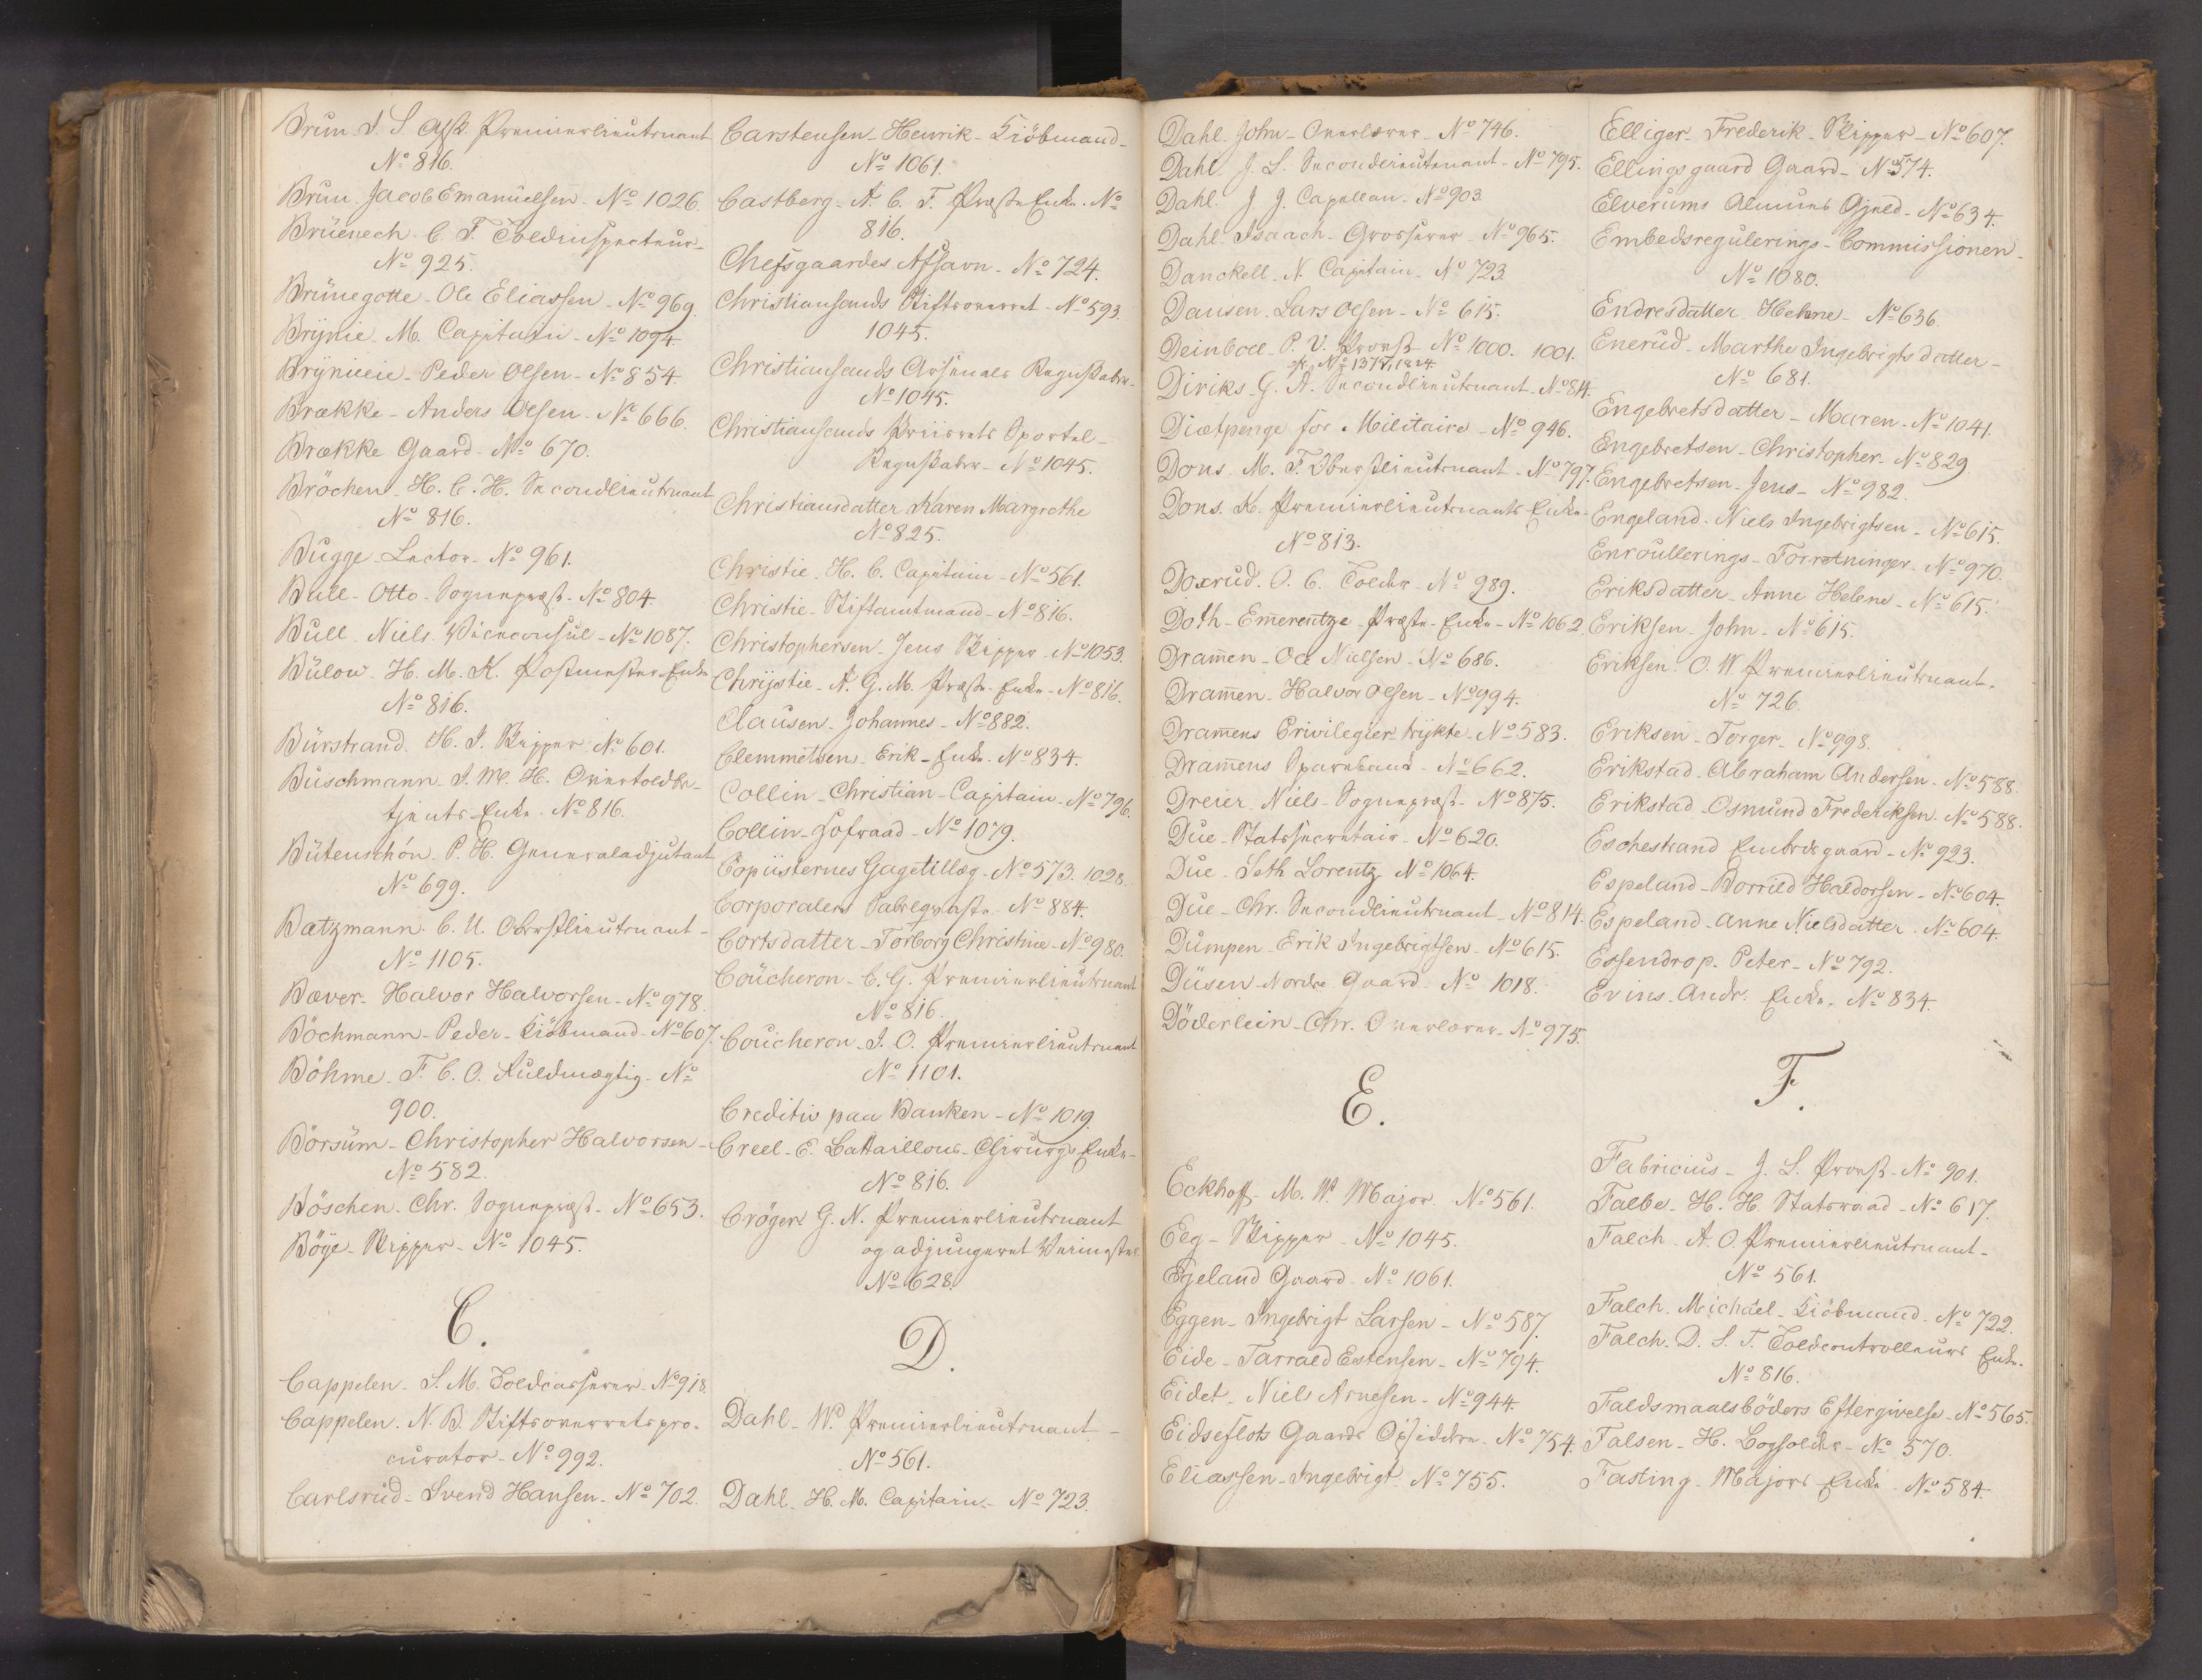 Brun J. S. afsk. Premierlieutenant
No 816.
Brun Jacob Emanuelsen - No 1026.
Brüenech C. F. Toldinspecteur -
No 925.
Brünegotte - Ole Eliassen - No 969.
Brÿnie M. Capitain - No 1094.
Brÿnie - Peder Olsen - No 854.
Brække - Anders Olsen - No 666.
Brække Gaard - No 670.
Bröchen - H. C. H. Secondlieutnant
No 816.
Bugge Lector - No 961.
Bull - Otto - Sognepræst - No 804.
Bull - Niels - Viceconsul - No 1087.
Bülow H. M. K. Postmester Enke
No 816.
Bürstrand H. J. Skipper No 601.
Buschmann J. M. H. Overtoldbe-
tjents Enke - No 816.
Bütenschön P. H. Generaladjutant
No 699.
Bætzmann C. U. Oberstlieutnant -
No 1105.
Bæver - Halvor Halvorsen - No 978.
Böchmann - Peder - Kiöbmand - No 607.
Böhme F. C. O. Fuldmægtig - No
900.
Börsüm - Christopher Halvorsen -
No 582.
Böschen Chr. Sognepræst - No 653.
Böÿe - Skipper - No 1045.
C.
Cappelen - S. M. Toldcasserer - No 918.
Cappelen - N. B. Stiftsoverretspro-
curator - No 992.
Carlsrud - Svend Hansen - No 702.
Carstensen - Henrik - Kiöbmand -
No 1061.
Castberg - A. C. F. Præste Enke - No
816.
Chefsgaardes Afsavn - No 724.
Christiansands Stiftsoverret - No 593.
1045.
Christiansands Arsenals Regnskaber -
No 1045.
Christiansands Priisrets Sportel -
Regnskaber - No 1045.
Christiansdatter Karen Margrethe
No 825.
Christie - H. C. Capitain - No 561.
Christie - Stiftamtmand - No 816.
Christophersen - Jens Skipper - No 1053.
Chrÿstie - A. G. M. Præste Enke - No 816.
Clausen - Johannes - No 882.
Clemmetsen - Erik - Enke - No 834.
Collin - Christian - Capitain - No 796.
Collin - Hofraad - No 1079.
Copiisternes Gagetillæg - No 573. 1028.
Corporalers Sabelqvaste - No 884.
Cortsdatter - Torborg Christine - No 980.
Coücheron - C. G. Premierlieutnant
No 816.
Coücheron - J. O. Premierlieutnant
No 1101.
Creditiv paa Banken - No 1019.
Creel - E. Battaillons - Chirurgs Enke -
No 816.
Cröger G. N. Premierlieutnant
og adjungeret Veimester
No 628.
D.
Dahl - W. Premierlieutnant -
No 561.
Dahl - H. M. Capitain - No 723.
Dahl - John - Overlærer - No 746.
Dahl - J. L. Secondlieutenant - No 795.
Dahl - J. J. Capellan - No 903.
Dahl - Isaach - Grosserer - No 965.
Danckell - N. Capitain - No 723.
Dansen - Lars Olsen - No 615.
Deinboll - P. V. Provst - No 1000. 1001.
cfr. No 1377, 1824.
Diriks - G. A. Secondlieutnant - No 814.
Diætpenge for Militaire - No 946.
Dons - M. F. Oberstlieutnant - No 797.
Dons - K. Premierlieutnants Enke -
No 813.
Doxrud - O. C. Tolder - No 989.
Doth - Emerentze - Præste - Enke - No 1062.
Dramen - Ole Nielsen - No 686.
Dramen - Halvor Olsen - No 994.
Dramens Privilegier trÿkte - No 583.
Dramens Sparebank - No 662.
Dreier - Niels - Sognepræst - No 875.
Due - Statssecretair - No 620.
Due - Seth Lorentz - No 1064.
Due - Chr. Secondlieutnant - No 814.
Dumpen - Erik Ingebrigtsen - No 615.
Düsen Nordre Gaard - No 1018.
Döderlein - Chr. Overlærer - No 975.
E.
Eckhoff - M. W. Major - No 561.
Eeg - Skipper - No 1045.
Egeland Gaard - No 1061.
Eggen - Ingebrigt Larsen - No 587.
Eide - Tarrald Estensen - No 794.
Eidet - Niels Arnesen - No 944.
Eidseflots Gaards Opsiddere - No 754.
Eliassen - Ingebrigt - No 755.
Elliger - Frederik - Skipper - No 607.
Ellingsgaard Gaard - No 574.
Elverums Almues Gjeld - No 634.
Embedsregulerings - Commissionen -
No 1080.
Endresdatter Helene - No 636.
Enerud - Marthe Ingebrigtsdatter -
No 681.
Engebretsdatter - Maren - No 1041.
Engebretsen - Christopher - No 829.
Engebretsen - Jens - No 982.
Engeland - Niels Ingebrigtsen - No 615.
Enroullerings - Forretninger - No 970.
Eriksdatter - Anne Helene - No 615.
Eriksen - John - No 615.
Eriksen - O. W. Premierlieutnant -
No 726.
Eriksen - Torger - No 998.
Erikstad - Abraham Andersen - No 588.
Erikstad - Osmund Fredericksen - No 588.
Eschestrand Embedsgaard - No 923.
Espeland - Borrild Haldorsen - No 604.
Espeland - Anne Nielsdatter - No 604.
Essendrop - Peter - No 792.
Evins - Andr. Enke - No 834.
F.
Fabricius - J. S. Provst - No 901.
Falbe - H. H. Statsraad - No 617.
Falch - A. O. Premierlieutnant -
No 561.
Falch - Michäel - Kiöbmand - No 722.
Falch - D. S. T. Toldcontrolleurs Enke -
No 816.
Faldsmaalsböders Eftergivelse - No 565.
Falsen - H. Bogholder - No 570.
Fasting - Majors Enke - No 584.